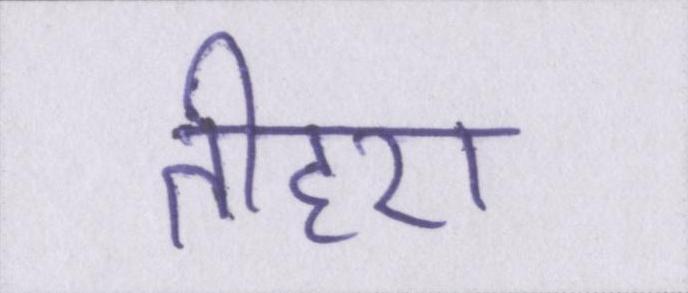 तीहरा